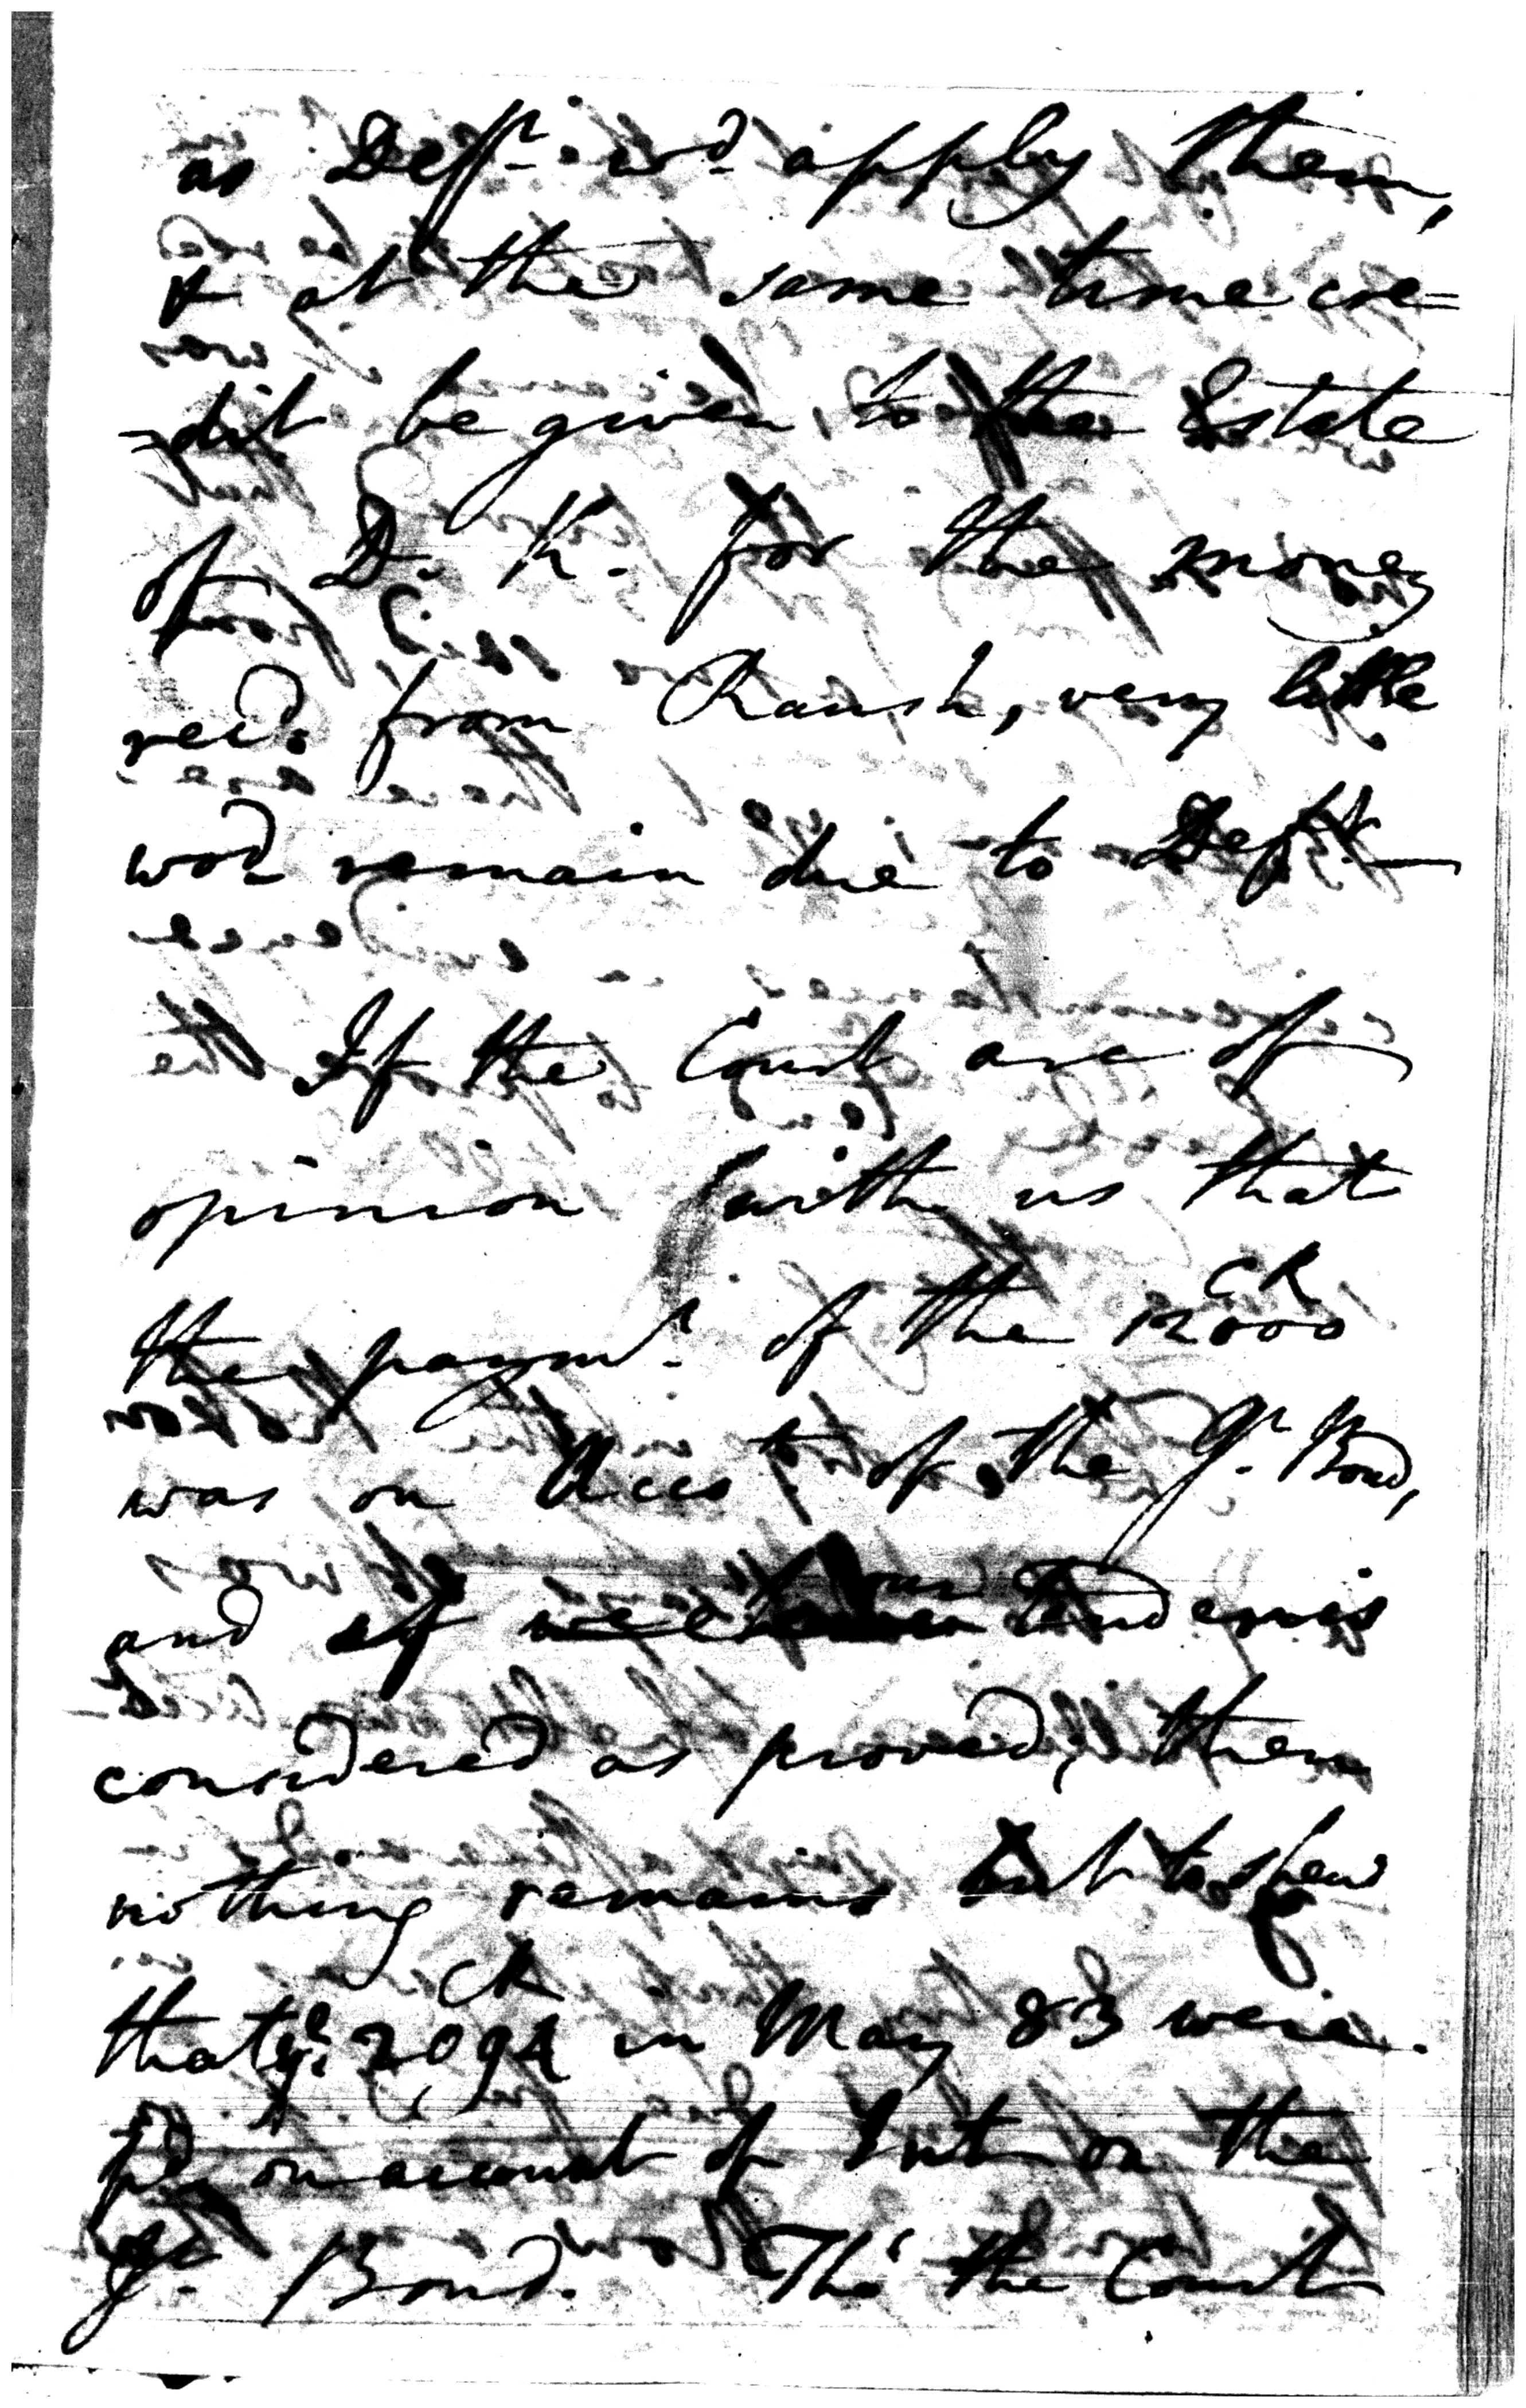 as Deft. wd. apply them,
& at the same time cre=
=dit be given to the Estate
of D. K. for the money
recd. from Raush, very little
wod. remain due to Deft.
If the Court are of
opinion with us that
the paymt. of the 12000 CR
was on Acct. of the Gr. Bond,
and if our evid
considered as proved, then
nothing remains but to shew
that ye. 2,094 CR in May 83 were
pd. on account of Int on the
Gr. Bond. Tho' the Court